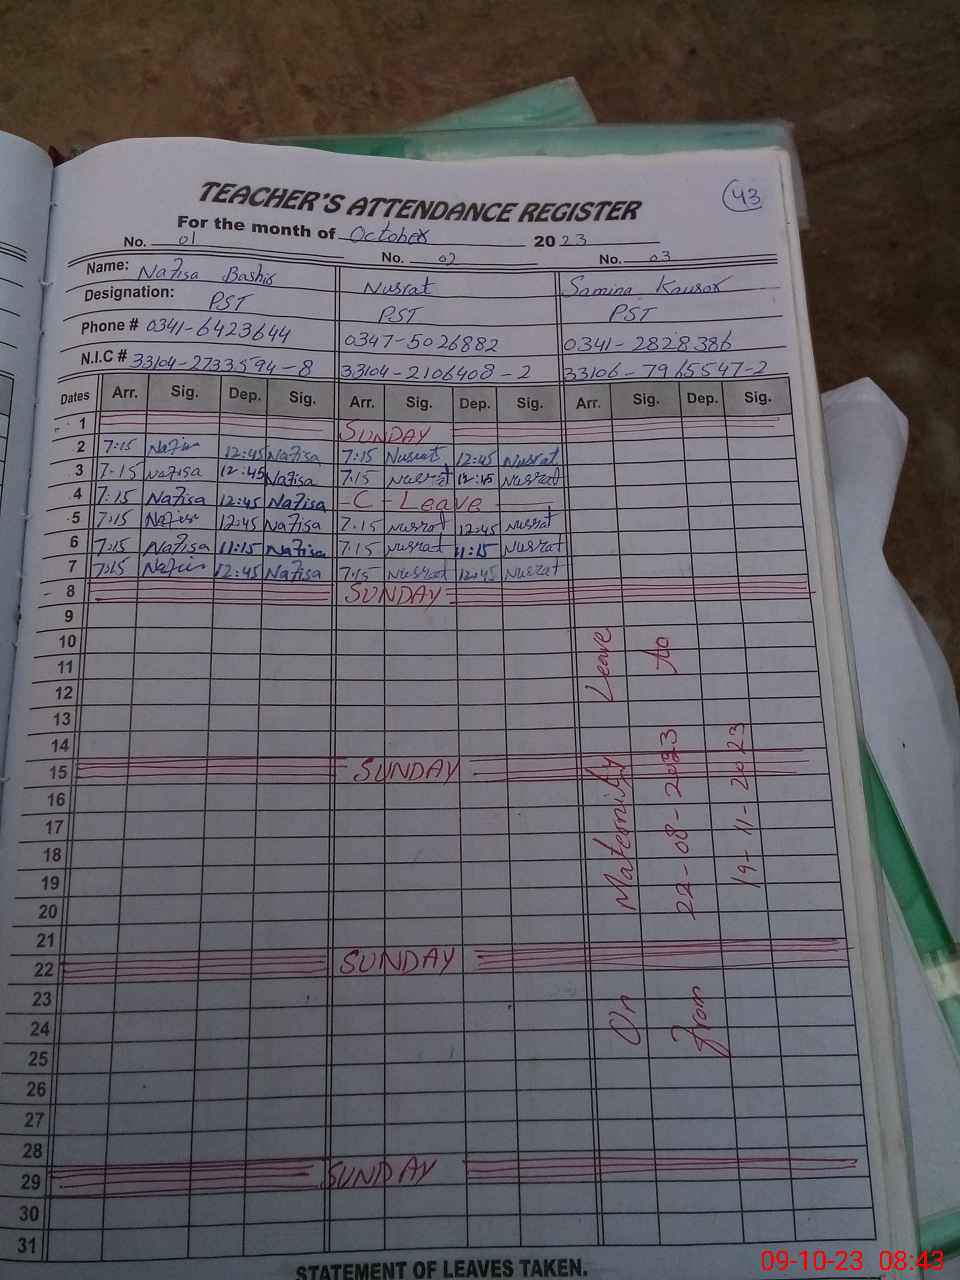 43
TEACHER'S ATTENDANCE REGISTER
For the month of October 2023
No. 01 No. 02 No. 03
Name: Nafisa Bashir Nusrat Samina Kausar
Designation: PST PST PST
Phone # 0341-6423644 0347-5026882 0341-2828386
N.I.C # 33104-2733594-8 33104-2106408-2 33106-7965547-2
Dates Arr. Sig. Dep. Sig. Arr. Sig. Dep. Sig. Arr. Sig. Dep. Sig.
1 SUNDAY
2 7:15 Nafisa 12:45 Nafisa 7:15 Nusrat 12:45 Nusrat
3 7:15 Nafisa 12:45 Nafisa 7.15 Nusrat 12:45 Nusrat
4 7:15 Nafisa 12:45 Nafisa - C - Leave
5 7:15 Nafisa 12:45 Nafisa 7.15 Nusrat 12:45 Nusrat
6 7:15 Nafisa 11:15 Nafisa 7.15 Nusrat 11:15 Nusrat
7 7:15 Nafisa 12:45 Nafisa 7.15 Nusrat 12:45 Nusrat
8 SUNDAY
9
10
11
12
13
14
15 SUNDAY
16
17
18
19
20
21
22 SUNDAY
23
24
25
26
27
28
29 SUNDAY
30
31
On Maternity Leave
From 22-08-2023 to
19-11-2023
STATEMENT OF LEAVES TAKEN.
09-10-23 08:43